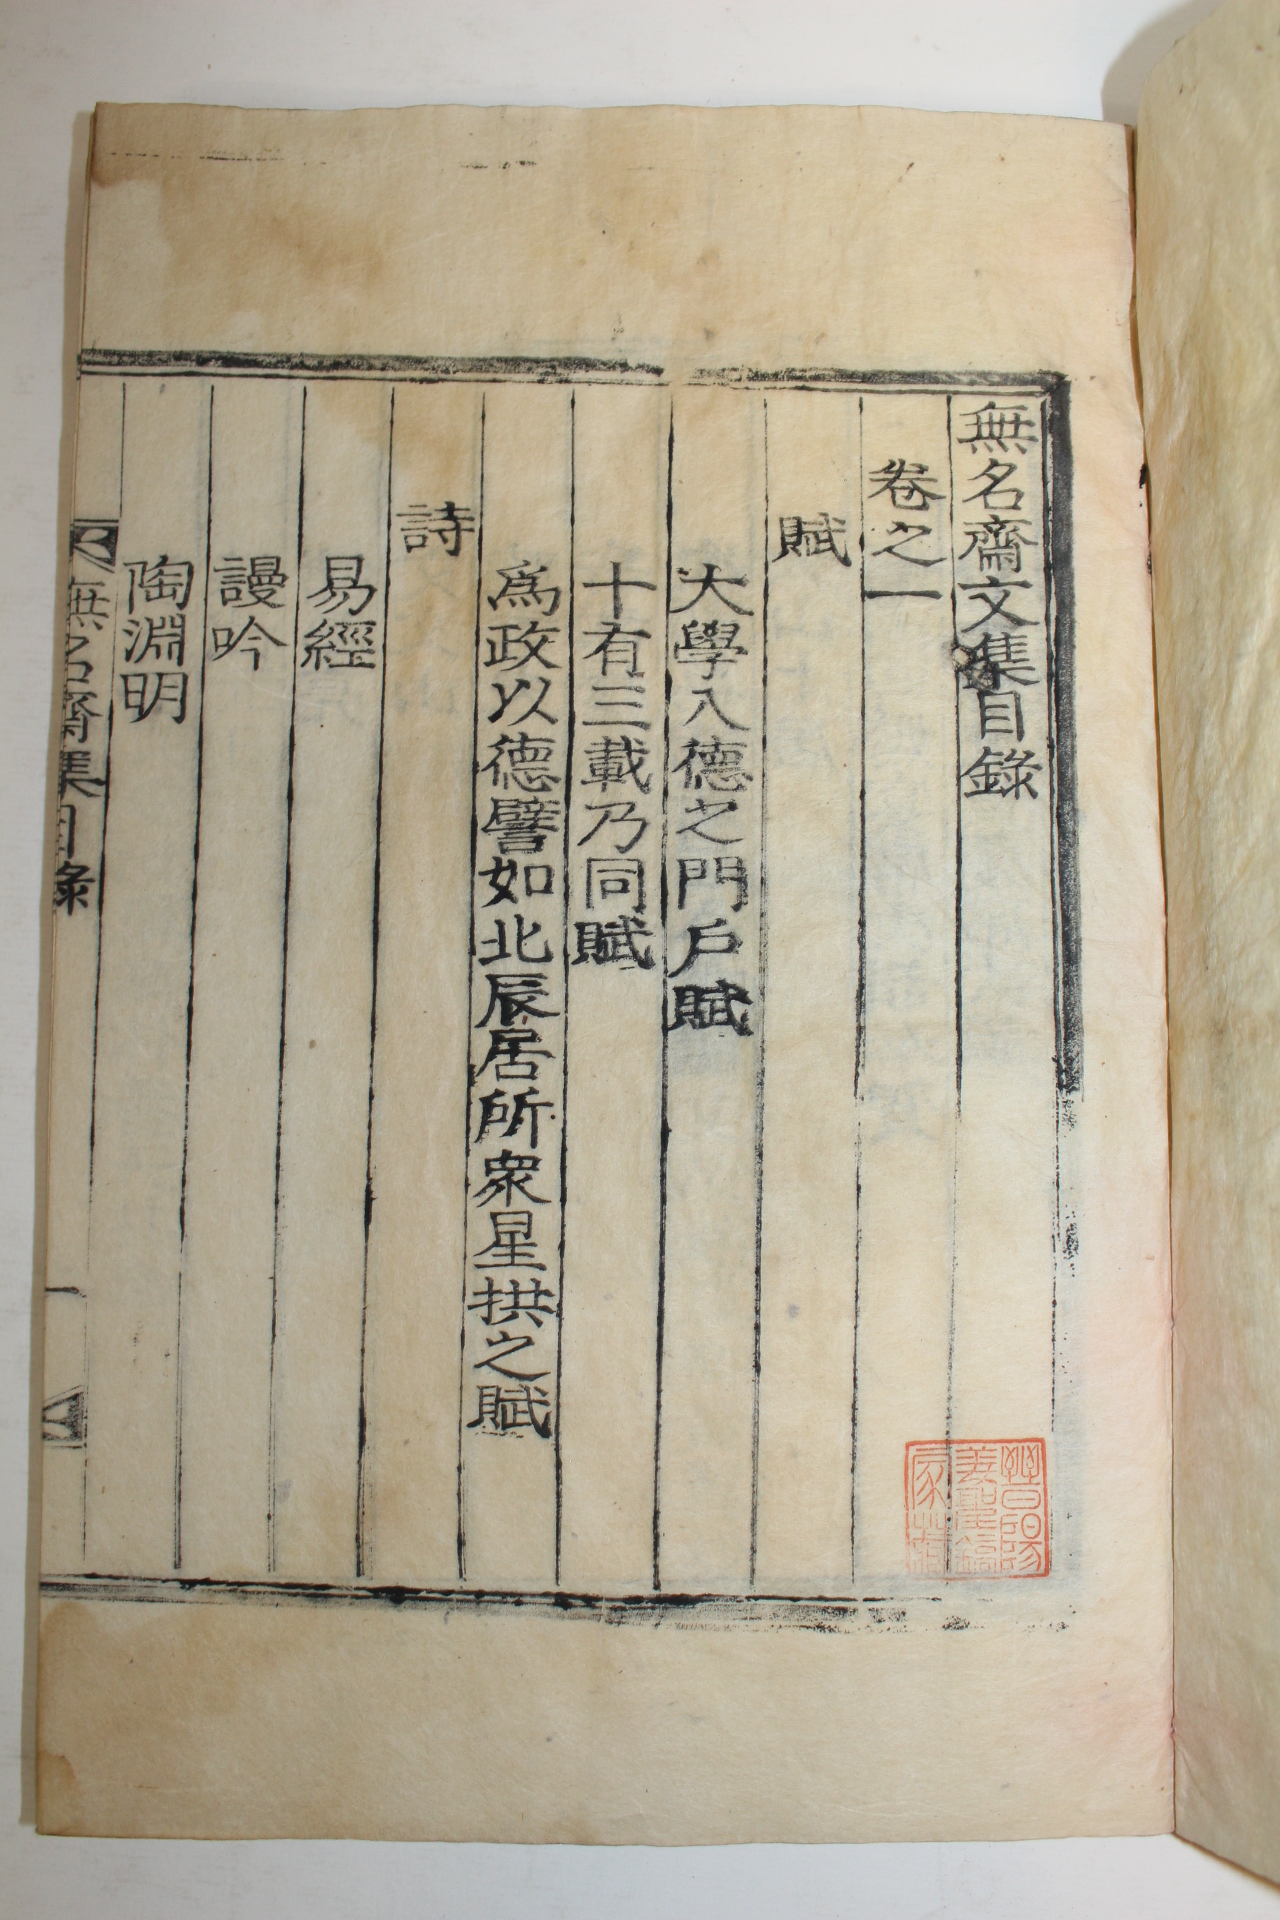 無名齋文集目錄
卷之一
賦
大學入德之門戶賦
十有三載乃同賦
爲政以德譬如北辰居所衆星拱之賦
詩
易經
謾吟
陶淵明
無名齋集目錄
一
晉陽
姜聖
家藏